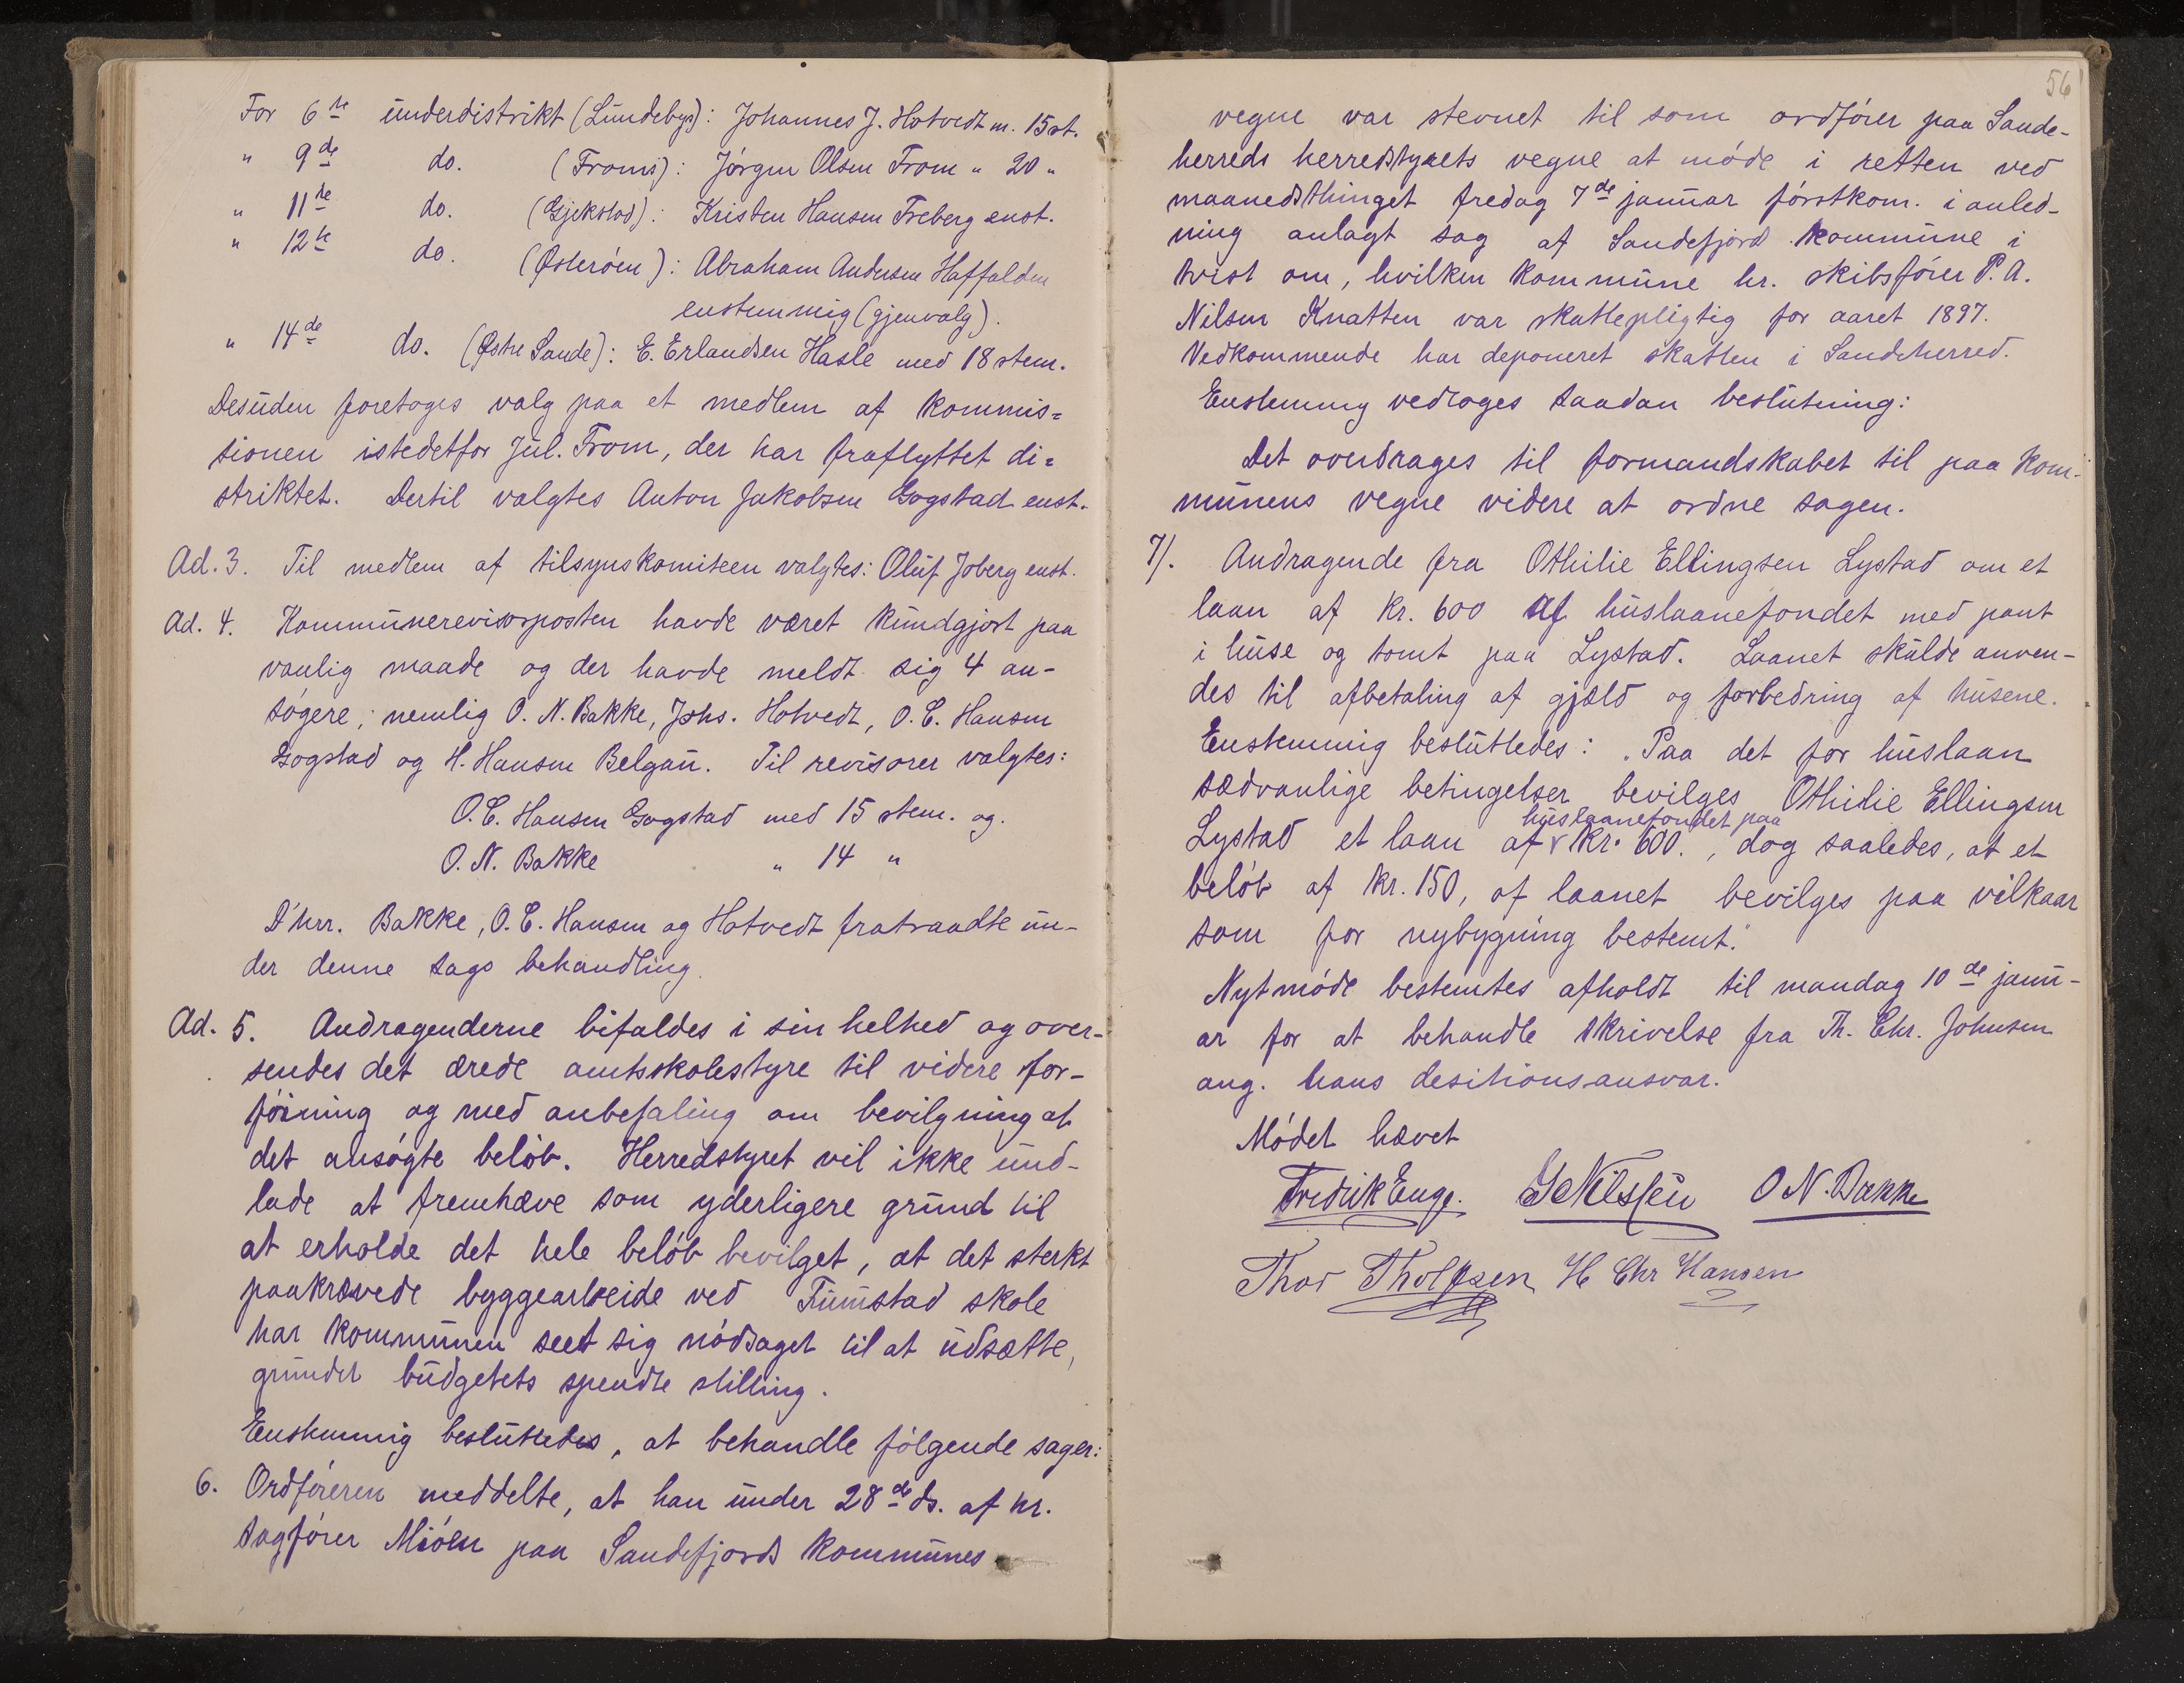 For 6te underdistrikt (Lundebys): Johannes J. Hotvedt m. 15 st.
" 9de do. (Froms): Jørgen Olsen From " 20 "
" 11te do. (Gjekstad): Kristen Hansen Freberg enst.
" 12te do. (Østerøen): Abraham Andersen Haffalden
enstemmig (gjenvalg).
" 14de do. (Østre Sande): E. Erlandsen Hasle med 18 stem.
Desuden foretoges valg paa et medlem af kommis=
sionen istedetfor Jul. From, der har fraflyttet di=
striktet. Dertil valgtes Anton Jakobsen Gogstad enst.
Ad. 3. Til medlem af tilsynskomiteen valgtes: Oluf Joberg enst.
Ad. 4. Kommunerevisorposten havde været kundgjort paa
vanlig maade og der havde meldt sig 4 an-
søgere; nemlig O. N. Bakke, Johs. Hotvedt, O. C. Hansen
Gogstad og H. Hansen Belgau. Til revisorer valgtes:
O. C. Hansen Gogstad med 15 stem. og.
O. N. Bakke " 14 "
D'hrr. Bakke, O. C. Hansen og Hotvedt fratraadte un-
der denne sags behandling.
Ad. 5. Andragenderne bifaldes i sin helhed og over-
sendes det ærede amtsskolestyre til videre for-
føining og med anbefaling om bevilgning af
det ansøgte beløb. Herredstyret vil ikke und-
lade at fremhæve som yderligere grund til
at erholde det hele beløb bevilget, at det sterkt
paakrævede byggearbeide ved Fumstad skole
har kommunen seet sig nødsaget til at udsætte,
grundet budgetets spendte stilling.
Enstemmig besluttedes, at behandle følgende sager:
6. Ordføreren meddelte, at han under 28de ds. af hr.
sagfører Miøen paa Sandefjords kommunes
56
vegne var stevnet til som ordfører paa Sande-
herreds herredstyrets vegne at møde i retten ved
maanedsthinget fredag 7de januar førstkom. i anled-
ning anlagt sag af Sandefjord kommune i
tvist om, hvilken kommune hr. skibsfører P. A.
Nilsen Knatten var skattepligtig for aaret 1897.
Vedkommende har deponeret skatten i Sandeherred.
Enstemmig vedtoges saadan beslutning:
Det overdrages til formandskabet til paa kom-
munens vegne videre at ordne sagen.
7/. Andragende fra Othilie Ellingsen Lystad om et
laan af kr. 600 af huslaanefondet med pant
i huse og tomt paa Lystad. Laanet skulde anven-
des til afbetaling af gjæld og forbedring af husene.
Enstemmig besluttedes: "Paa det for huslaan
sædvanlige betingelser bevilges Othilie Ellingsen
huslaanefondet paa
Lystad et laan af kr. 600., dog saaledes, at et
beløb af kr. 150, af laanet bevilges paa vilkaar
som for nybygning bestemt."
Nyt møde bestemtes afholdt til mandag 10de janu-
ar for at behandle skrivelse fra Th. Chr. Johnsen
ang. hans desitionsansvar.
Mødet hævet
Fredrik Enge. Nilssen O N. Bakke
Thor Tholfsen H Chr Hansen